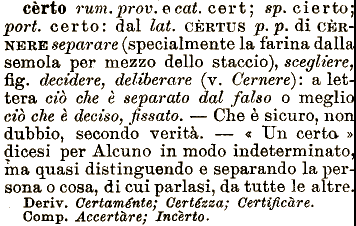 cèrto rum. prov. e cat. cert; sp. cierto;
port. certo: dal lat. CÈRTUS p. p. di CÈR-
NERE separare (specialmente la farina dalla
semola per mezzo dello staccio), scegliere,
fig. decidere, deliberare (v. Cernere): a let-
tera ciò che è separato dal falso o meglio
ciò che è deciso, fissato. — Che è sicuro, non
dubbio, secondo verità. — « Un certo »
dicesi per Alcuno in modo indeterminato,
ma quasi distinguendo e separando la per-
sona o cosa, di cui parlasi, da tutte le altre.
Deriv. Certaménte; Certézza; Certificàre.
Comp. Accertàre; Incèrto.